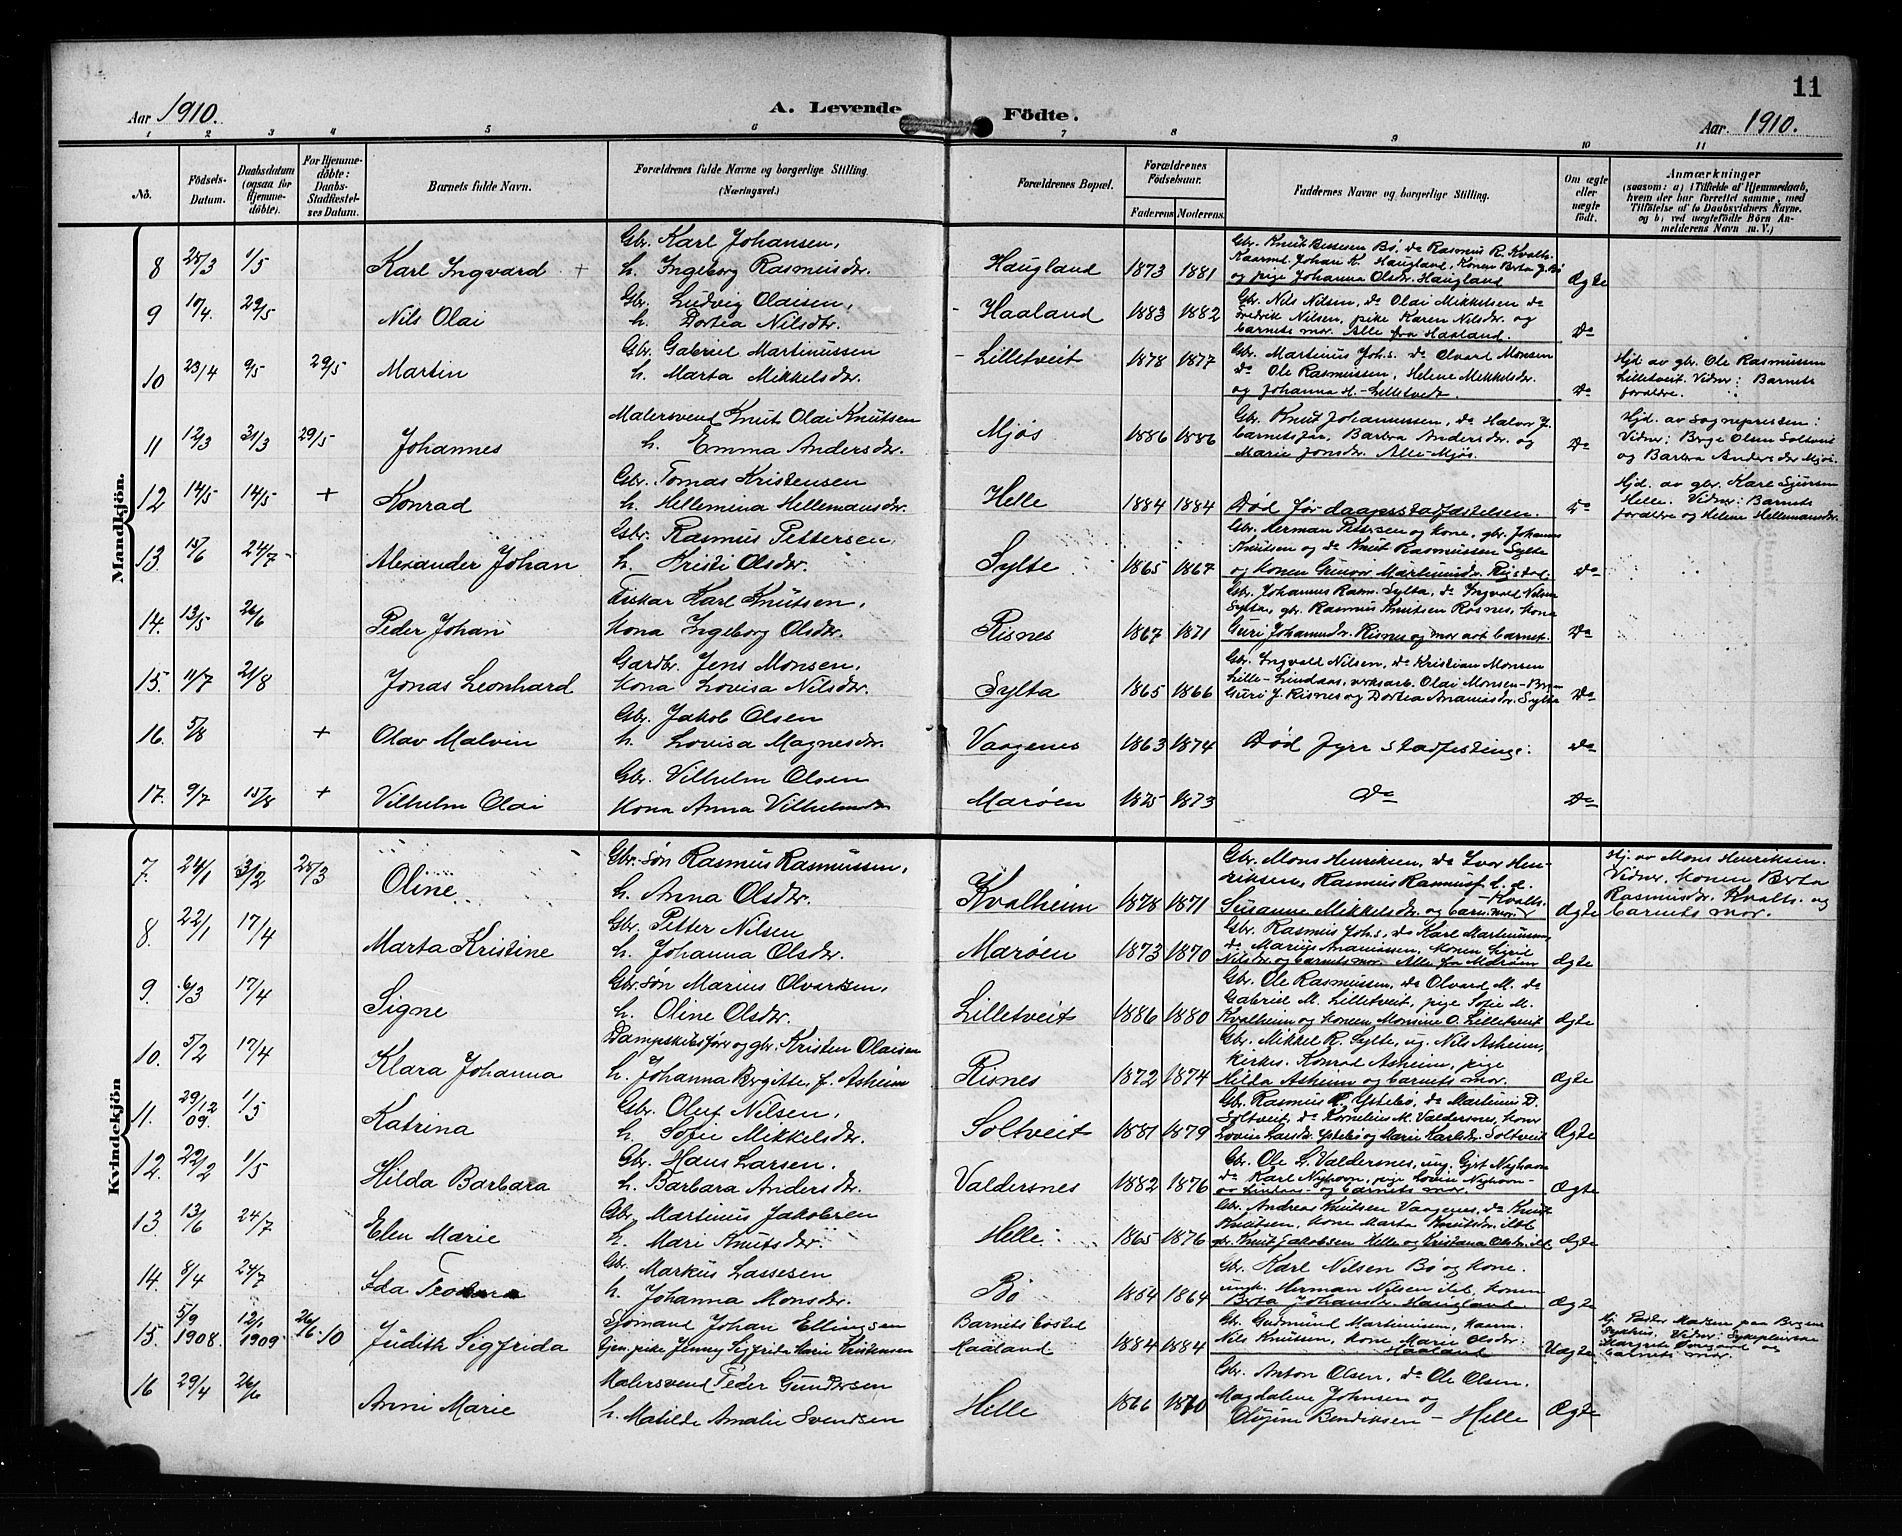 11
Aar 1910.
A. Levende Födte.
Aar 1910.
1 2 3 4 5 6 7 8 9 10 11
No.
Födsels-Datum.
Daabsdatum (ogsaa for Hjemme-döbte).
For Hjemme-döbte: Daabs-Stadfæstel-ses Datum.
Barnets fulde Navn.
Forældrenes fulde Navne og borgerlige Stilling. (Næringsvei.)
Forældrenes Bopæl.
Forældrenes Födselsaar.
Faderens. Moderens.
Faddernes Navne og borgerlige Stilling.
Om ægte eller uægte födt.
Anmærkninger
(saasom: a) i Tilfælde af Hjemmedaab, hvem der har forrettet samme, med Tilföielse af to Daabsvidners Navne, og b) ved uægtefödte Börn An-melderens Navn m. V.)
Mandkjön.
8 25/3 1/5 Karl Ingvard +
Gbr. Karl Johansen,
h. Ingeborg Rasmusdr.
Haugland 1873 1881
Gbr. Knut Bessesen Bø, do Rasmus R. Kvalh.
Kaarmd. Johan K. Haugland, Konen Berta J. Bø
og pige Johanna Olsdr. Haugland
Ægte
9 17/4. 29/5 Nils Olai
Gbr. Ludvig Olaisen,
h. Dortea Nilsdr.
Haaland 1883 1882
Gbr. Nils Nilsen, do Olai Mikkelsen do
Fredrik Nilsen, pike Karen Nilsdr. og
barnets mor. Alle fra Haaland.
Do
10 23/4 9/5 29/5 Martin
Gbr. Gabriel Martinussen
h. Marta Mikkelsdr.
Lilletveit 1878 1877
Gbr. Martinus Johs. do Olvard Monsen
do Ole Rasmussen, Helene Mikkelsdr.
og Johanna H. Lilletvedt.
Do
Hjd. av gbr. Ole Rasmussen
Lilletveit. Vidner: Barnets
forældre.
11 12/3 31/3 29/5 Johannes
Malersvend Knut Olai Knutsen
h. Emma Andersdr.
Mjøs 1886 1886
Gbr. Knut Johannessen, do Halvor J.
barnets far, Barbra Andersdr. og
Marie Jonsdr. Alle Mjøs.
Do
Hjd. av Sognepresten:
Vidner: Brye Olsen Soltveit
og Barbra Andersdr Mjøs.
12 14/5 14/5 + Konrad
Gbr. Tomas Kristensen
h. Hellemina Hellemansdr.
Helle 1884 1884
Død før daapsstadfæstelsen.
Do
Hjd. av gbr. Karl Sjursen
Helle. Vidner: Barnets
forældre og Helene Hellemansdr.
13. 15/6 24/7 Alexander Johan
Gbr. Rasmus Pettersen,
h. Kristi Olsdr.
Sylte 1865 1867
Gbr. Herman Petersen og kone, gbr. Johannes
Knutsen og do Knut Rasmussen Sylte
og Konen Gunvor Martinusdr. Rigsdal.
Do
14. 13/5 26/6 Peder Johan
Fisker Karl Knutsen,
Kona Ingeborg Olsdr.
Risnes 1867 1871
Gbr. Johannes Rasm. Sylta, do Ingvald Nilsen
Sylta, gbr. Rasmus Knutsen Rosnes, kona
Guri Johannesdr. Risnes og mor aat barnet.
Do
15. 11/7 21/8 Jonas Leonhard
Gardbr. Jens Monsen,
Kona Lovisa Nilsdr.
Sylta 1865 1866
Gbr. Ingvald Nilsen, do Kristian Monsen
Lille-Lindaas, verksarb. Olai Monsen-
Guri J. Risnes og Dortea Ananiasdr. Sylta
Do
16. 5/8 + Olav Malvin
Gbr. Jakob Olsen
h. Lovisa Magnesdr.
Vaagenes 1863 1874
Død fyrr stadfestinge:
Do
17. 9/7 15/8 + Vilhelm Olai
Gbr. Vilhelm Olsen
Kona Anna Vilhelmsdr
Marøen 1875 1873
Do
Do
Kvindekjön
7. 24/1 3/2 25/3 Oline
Gbr. Søn Rasmus Rasmussen,
h. Anna Olsdr.
Kvalheim 1878 1871
Gbr. Mons Henriksen, do Ivar Hen-
riksen, Rasmus Rasmusf.
Susanne Mikkelsdr. og barn. mor
Ægte
Hj. av Mons Henriksen.
Vidner, Konen Berta
Rasmusdr. Kvalh. og
barnets mor.
8. 22/1 17/4 Marta Kristine
Gbr. Petter Nilsen
h. Johanna Olsdr.
Marøen 1873 1870
Gbr. Rasmus Johs, do Karl Martinusen,
do Marius Ananiassen, Konen Sigrid
Nilsdr og barnets mor. Alle fra Marøen
Ægte
9. 6/3 17/4 Signe
Gbr. Søn Marius Olvardsen,
h. Oline Olsdr.
Lilletveit 1886 1880
Gbr. Ole Rasmussen, do Olvard M. do
Gabriel M. Lilletveit, pige Sofie M.
Kvalheim og konen Monsine O. Lilletveit
Ægte
10. 5/2 17/4 Klara Johanna
Dampskibsfører og gbr. Kristen Olaisen
h. Johanna Birgitte, f. Asheim
Risnes 1872 1874
Gbr. Mikkel R. Sylte, ug. Nils Asheim,
kirkes. Konrad Asheim, pige
Hilda Asheim og barnets mor.
Ægte
11. 29/12 09. 1/5 Katrina
Gbr. Oluf Nilsen,
h. Sofie Mikkelsdr.
Soltveit 1881 1879
Gbr. Rasmus R. Ystebø, do Martinus D.
Soltveit, do Kornelius M. Valdersnes, kone
Lovise Larsdr. Ystebø og Marie Karlsdr. Soltveit
Ægte
12. 22/2 1/5 Hilda Barbara
Gbr. Hans Larsen.
h. Barbara Andersdr.
Valdersnes 1882 1876
Gbr. Ole L. Valdersnes, ung. Gjert Nyhavn
do Karl Nyhavn, pige Lovise Nyhavn-
og barnets mor.
Ægte
13. 13/6 24/7 Elen Marie
Gbr. Martinus Jakobsen
h. Mari Knutsdr.
Helle. 1865 1876
Gbr. Andreas Knutsen Vaagenes, do Knut
Knutsen, kone Marta Knutsdr. ibd
gbr. Knut Jakobsen Helle og Kristana Olsdr. ibd
Ægte
14. 8/4 24/7 Ida Teodora
Gbr. Markus Lassesen
h. Johanna Monsdr.
Bø 1854 1864
Gbr. Karl Nilsen Bø og kone.
ungk. Herman Nilsen ibd, konen
Berta Johansdr. Haugland
Ægte
15. 5/9 1908. 12/1 1909 26/6 10 Judith Sigfrida
Sjømand Johan Ellingsen
Tjen. pike Jenny Sigfrida Marie Kristensen
Barnets bosted Haaland 1884 1884
Gbr. Gudmund Martinussen, kaarm.
Nils Knutsen, kone Marie Olsdr.
Haaland
Uægte
Hj. Pastor Madsen paa Bergens
Sykehus. Vidner: Sykepleierske
Margrete og
barnets mor.
16 29/4 26/6 Anni Marie
Malersvend Peder Gundersen
h. Matilde Amalie Svendsen
Helle 1866 1870
Gbr. Anton Olsen, do Ole Olsen,
Magdalene Johnsen og
Bendiksen - Helle
Ægte